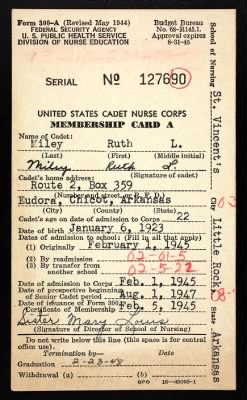 Form 300-A (Revised May 1944)
FEDERAL SECURITY AGENCY
U. S. PUBLIC HEALTH SERVICE
DIVISION OF NURSE EDUCATION
Budget Bureau
No. 68-R145.1.
Approval expires
8-31-45
SERIAL No 127690
UNITED STATES CADET NURSE CORPS
MEMBERSHIP CARD A
Name of Cadet:
Miley Ruth L.
(Last) (First) (Middle initial)
Miley Ruth L.
(Signature of cadet)
Cadet's home address:
Route 2, Box 359
(Number and street or R. F. D.)
Eudora, Chicot, Arkansas
Cadet's age on date of admission to Corps 22
Date of birth January 6, 1923
Dates of admission to school: (Fill in all that apply)
(1) Originally February 1, 1945
(2) By readmission 02-01-5
(3) By transfer from
another school 02-5-22
Date of admission to Corps Feb. 1, 1945
Date of prospective beginning
of Senior Cadet period Aug. 1, 1947
Date of issuance Form 300
Certificate of Membership Feb. 2, 1945
Sister Mary Louis
(Signature of Director of School of Nursing)
Do not write below this line (this space is for central
office use).
Termination by— Date
Graduation 2-23-48
Withdrawal (a) (b)
GPO 16-40305-1
School of Nursing St. Vincent's
City Little Rock
State Arkansas